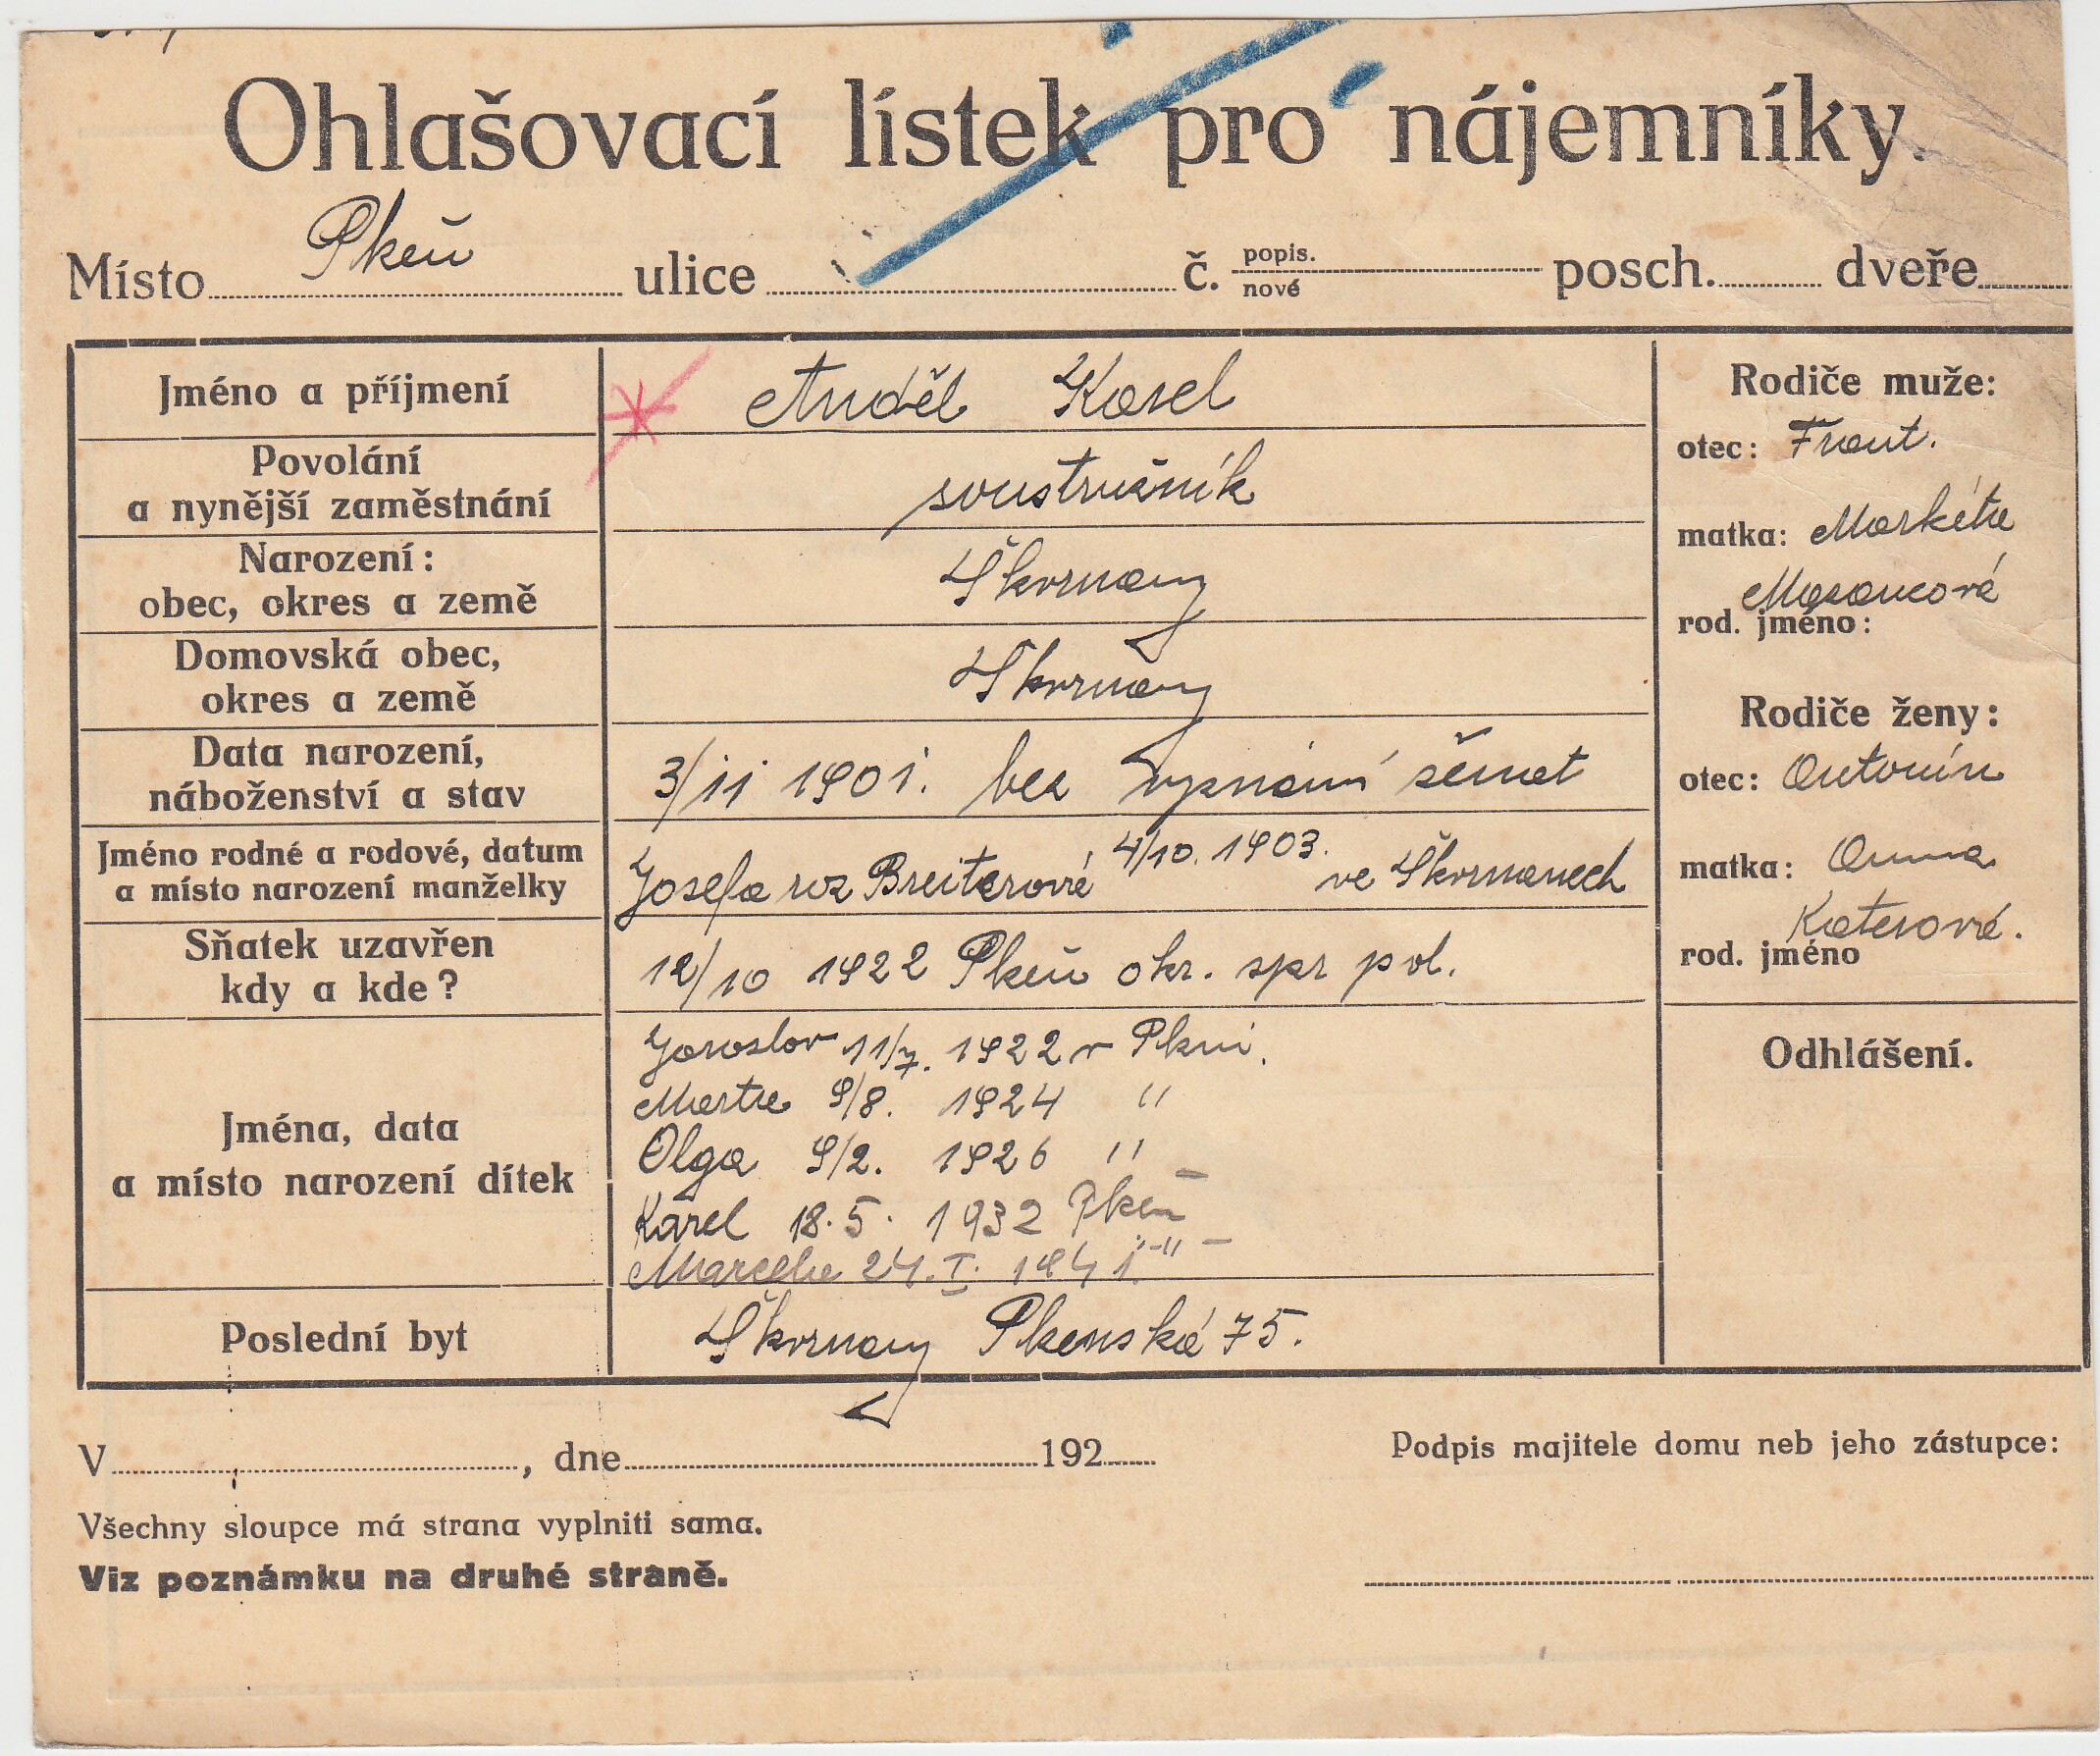 Ohlašovací lístek pro nájemníky.
Místo Plzeň ulice č. popis. nové posch. dveře
Jméno a příjmení Anděl Karel
Povolání
a nynější zaměstnání soustružník
Narození:
obec, okres a země Škvrňany
Domovská obec,
okres a země Škvrňany
Data narození,
náboženství a stav 3/11 1901. bez vyznání ženat
Jméno rodné a rodové, datum
a místo narození manželky Josefa roz Breiterová 4/10. 1903. ve Škvrňanech
Sňatek uzavřen
kdy a kde? 12/10 1922 Plzeň okr. spr pol.
Jména, data
a místo narození dítek
Jaroslav 11/7. 1922 v Plzni.
Marta 9/8. 1924 "
Olga 9/2. 1926 "
Karel 18.5. 1932 Plzeň
24.I. 1941. -"-
Poslední byt Škvrňany Plzenská 75.
Rodiče muže:
otec: Frant.
matka: Markéta
rod. jméno:
Rodiče ženy:
otec: Antonín
matka: Anna
Katerová.
rod. jméno
Odhlášení.
V , dne 192
Podpis majitele domu neb jeho zástupce:
Všechny sloupce má strana vyplniti sama.
Viz poznámku na druhé straně.